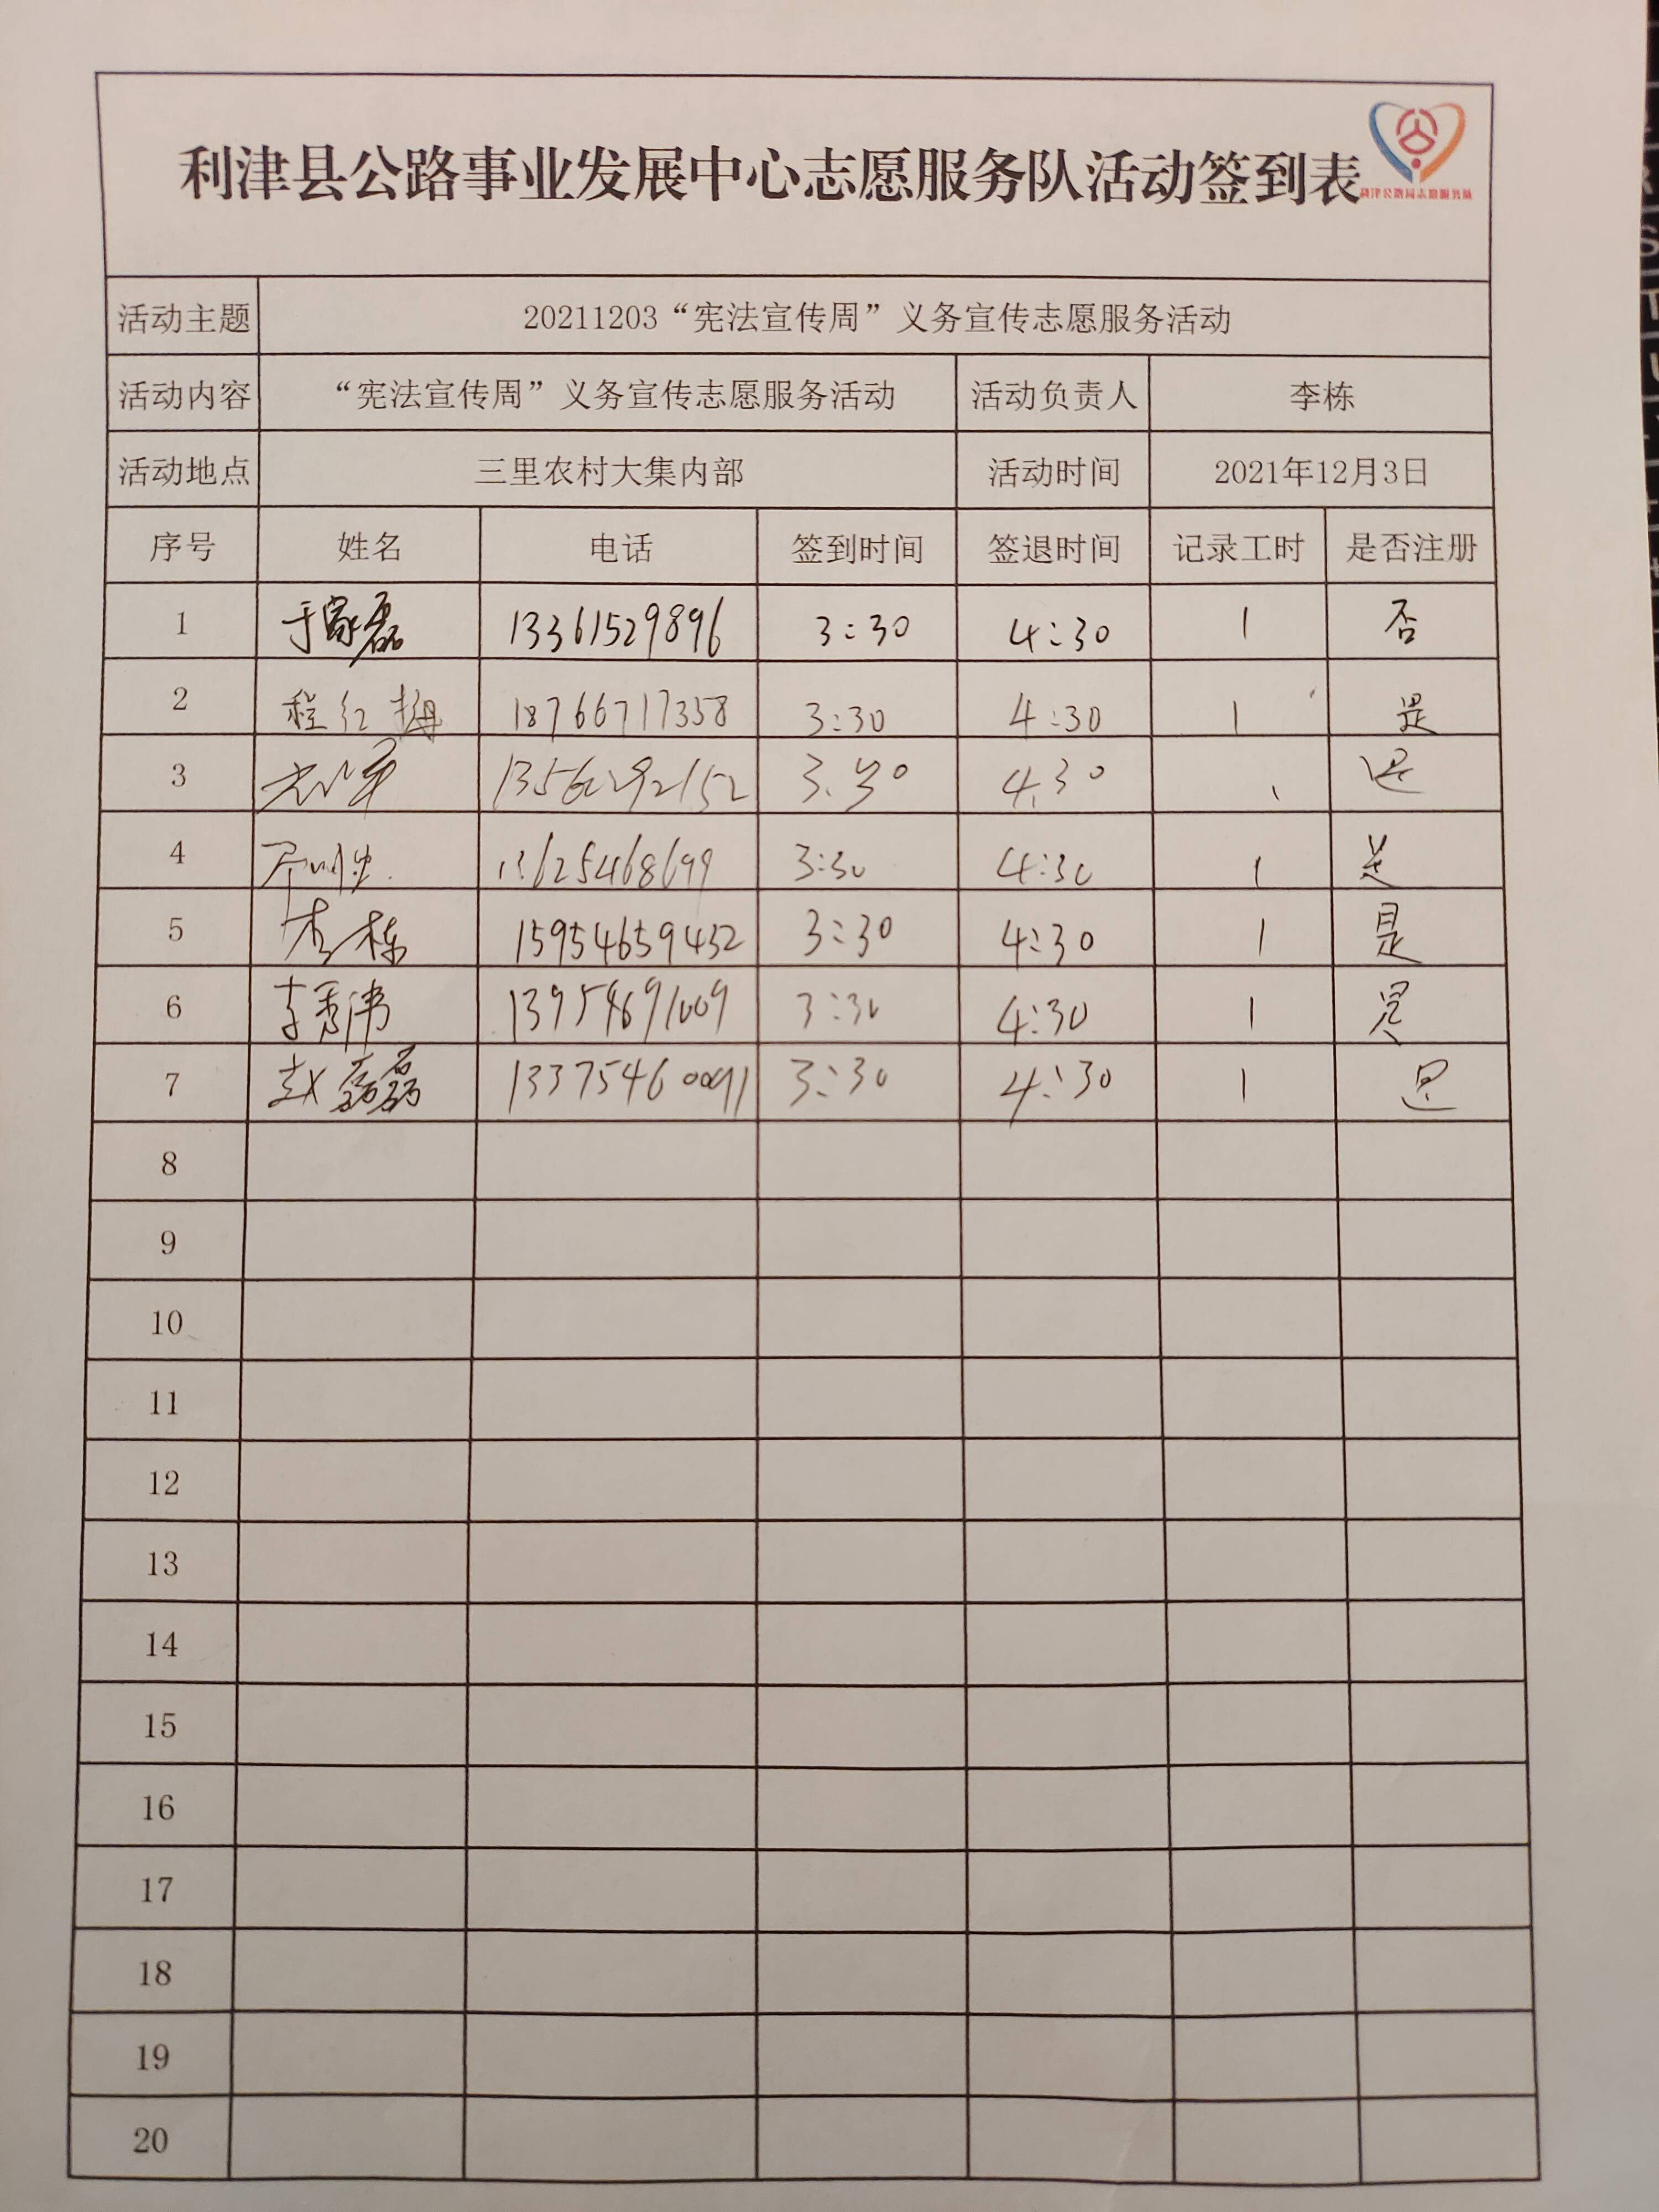 利津县公路事业发展中心志愿服务队活动签到表
利津公路局志愿服务队
活动主题 20211203“宪法宣传周”义务宣传志愿服务活动
活动内容 “宪法宣传周”义务宣传志愿服务活动 活动负责人 李栋
活动地点 三里农村大集内部 活动时间 2021年12月3日
序号 姓名 电话 签到时间 签退时间 记录工时 是否注册
1 于家磊 13361529896 3:30 4:30 1 否
2 程红梅 18766717358 3:30 4:30 1 是
3 3:30 4:30 1 是
4 13625468699 3:30 4:30 1 是
5 李栋 15954659432 3:30 4:30 1 是
6 李秀伟 13954691009 3:30 4:30 1 是
7 赵磊磊 13375460091 3:30 4:30 1 是
8
9
10
11
12
13
14
15
16
17
18
19
20